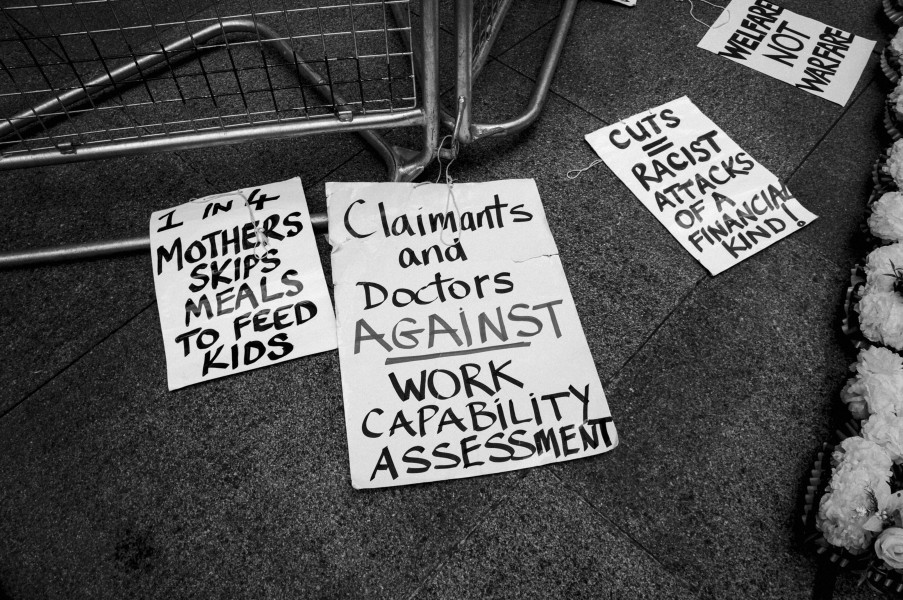 1 IN 4
MOTHERS
SKIPS
MEALS
TO FEED
KIDS
Claimants
and
Doctors
AGAINST
WORK
CAPABILITY
ASSESSMENT
CUTS
=
RACIST
ATTACKS
OF A
FINANCIAL
KIND!
WELFARE
NOT
WARFARE